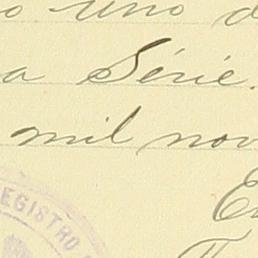 o uno d
a Série.
mil nov
En
REGISTRO